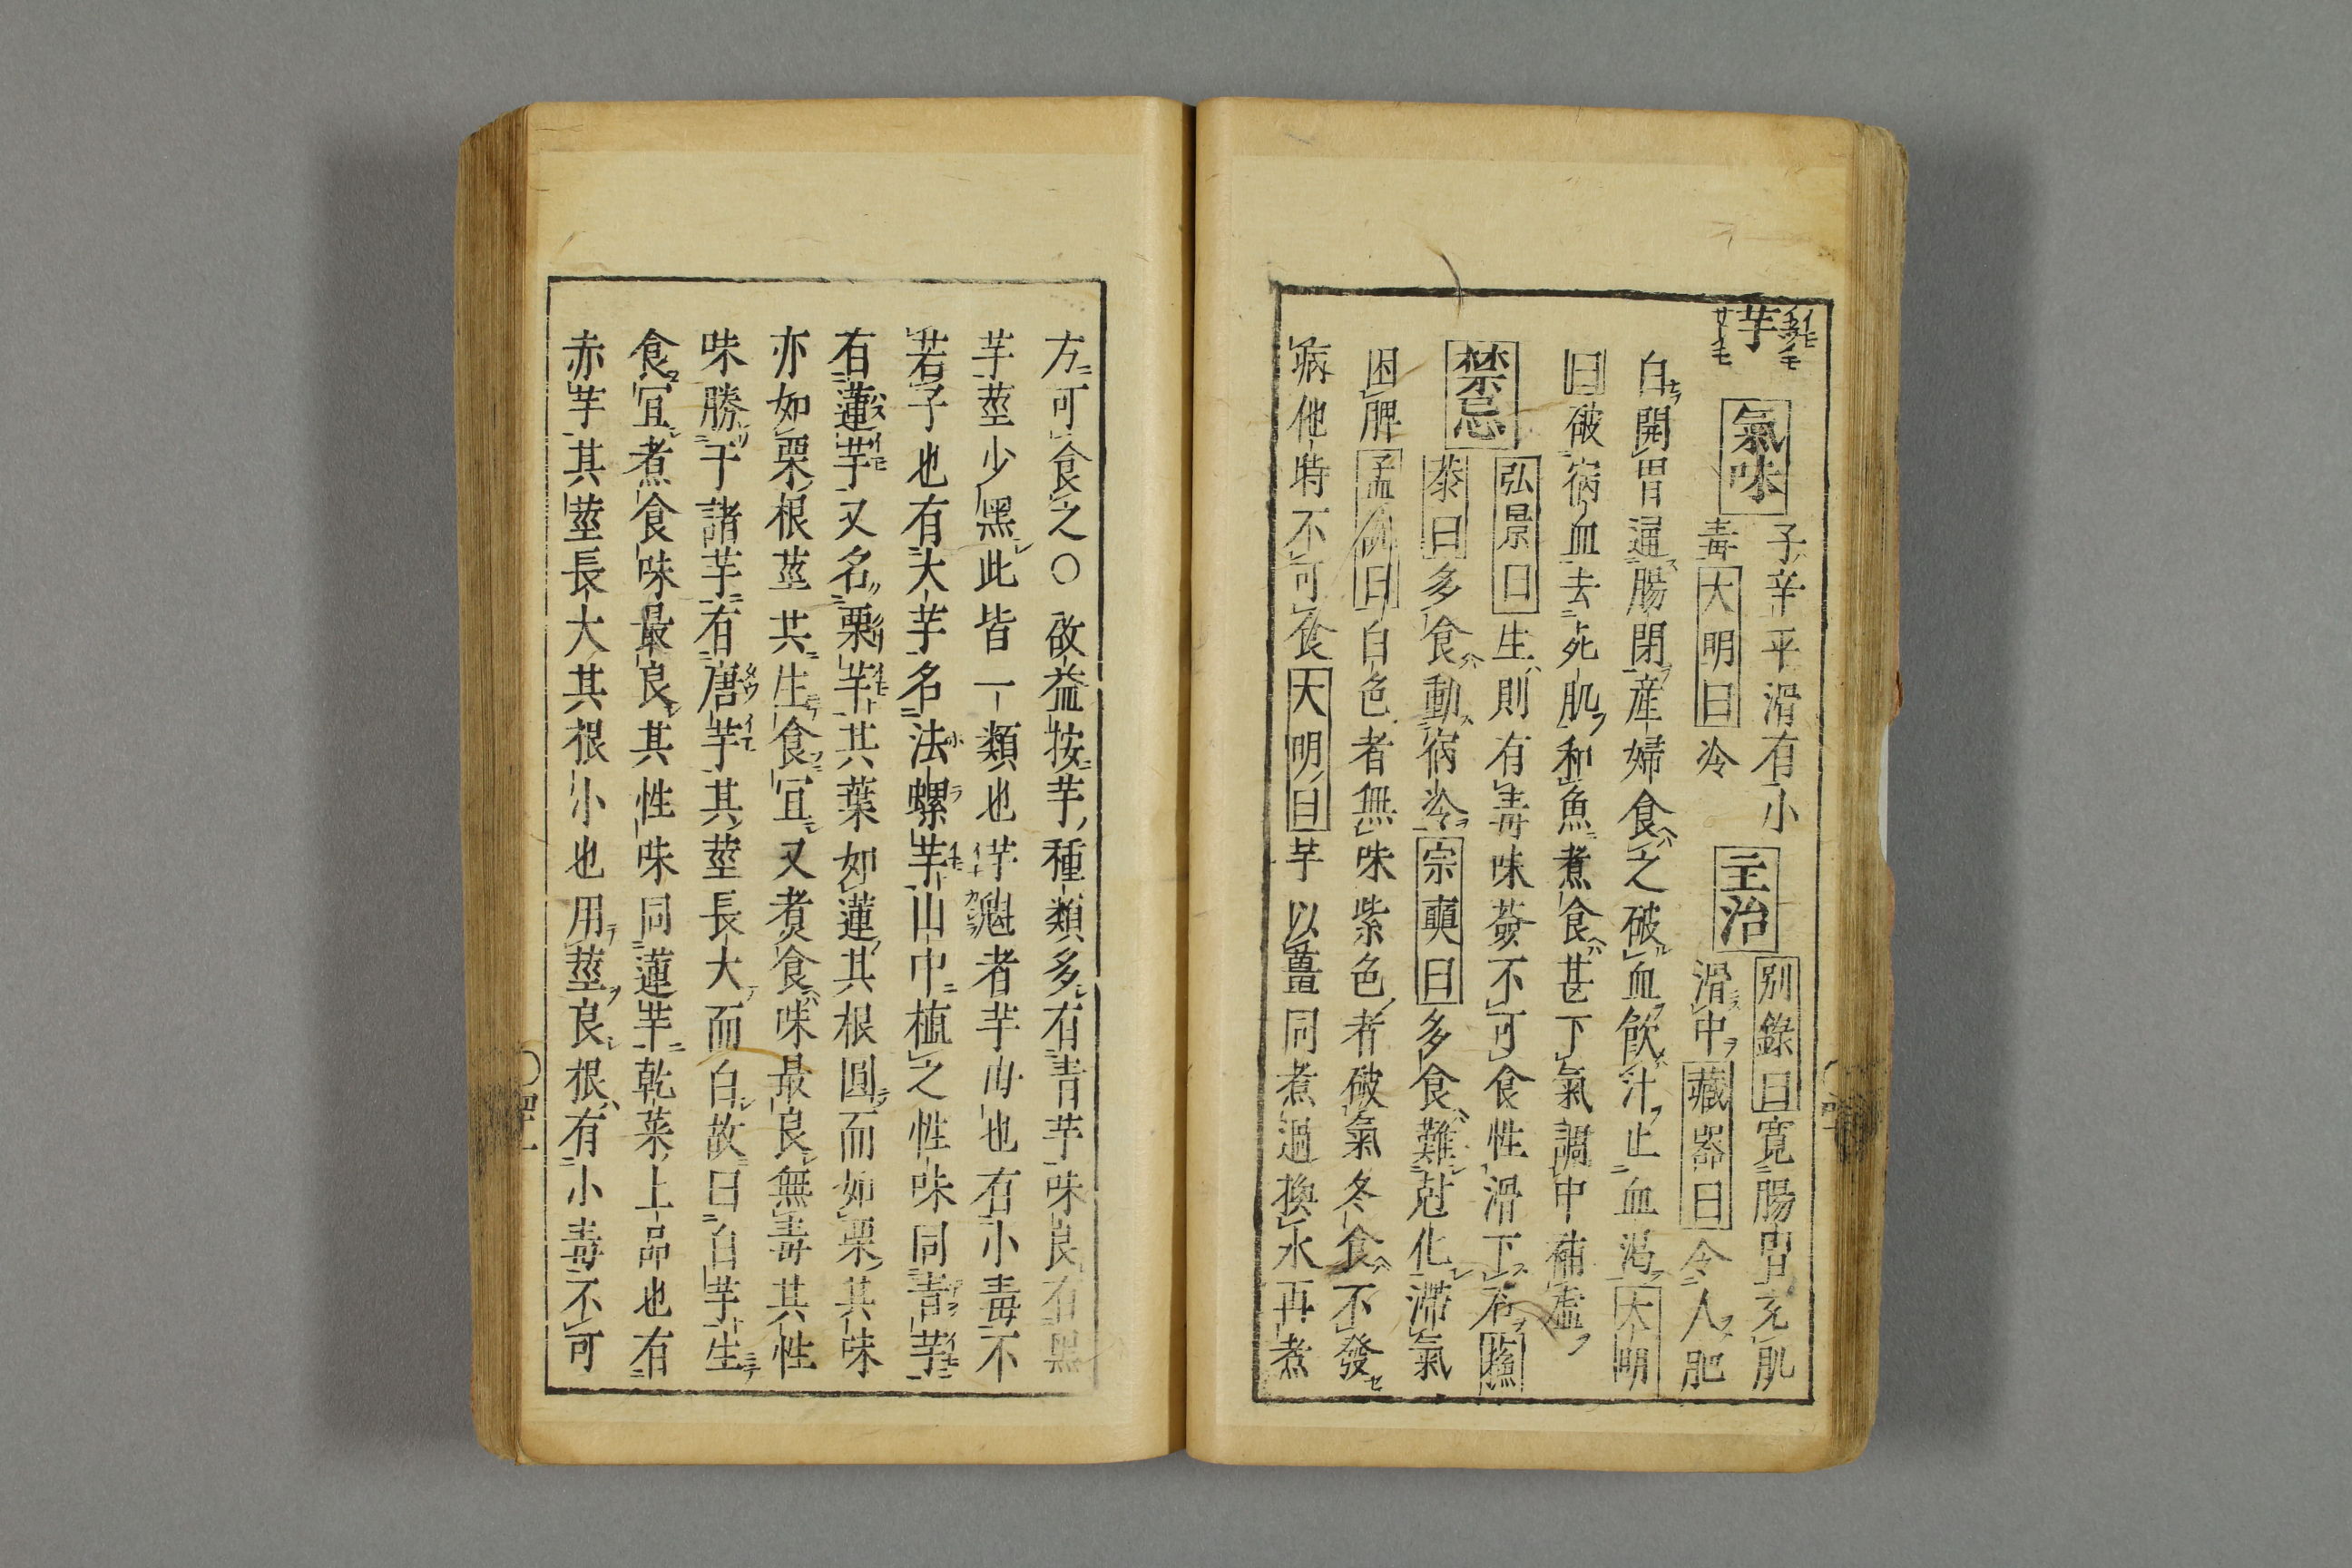 芋 氣味 子辛平滑有小毒 大明曰冷 主治 別錄曰寛腸胃充肌滑中 藏器曰令人肥
白開胃通腸閉産婦食之破血飲汁止血渇 大明
曰破宿血去死肌和魚煮食甚下氣調中補虚
禁忌 弘景曰生則有毒味莶不可食性滑下石
恭曰多食動宿冷 宗奭曰多食難尅化滞氣
困脾 孟詵曰白色者無味紫色者破氣冬食不發
病他時不可食 大明曰芋以薑同煮過換水再煮
方可食之〇啟益按芋種類多有青芋味良有黑
芋莖少黑此皆一類也芋魁者芋母也有小毒不
若子也有大芋名法螺芋山中植之性味同青芋
有蓮芋又名栗芋其葉如蓮其根圓而如栗其味
亦如栗根莖共生食宜又煮食味最良無毒其性
味勝于諸芋有唐芋其莖長大而白故曰白芋生
食宜煮食味最良其性味同蓮芋乾菜上品也有
赤芋其莖長大其根小也用莖良根有小毒不可
〇四十一